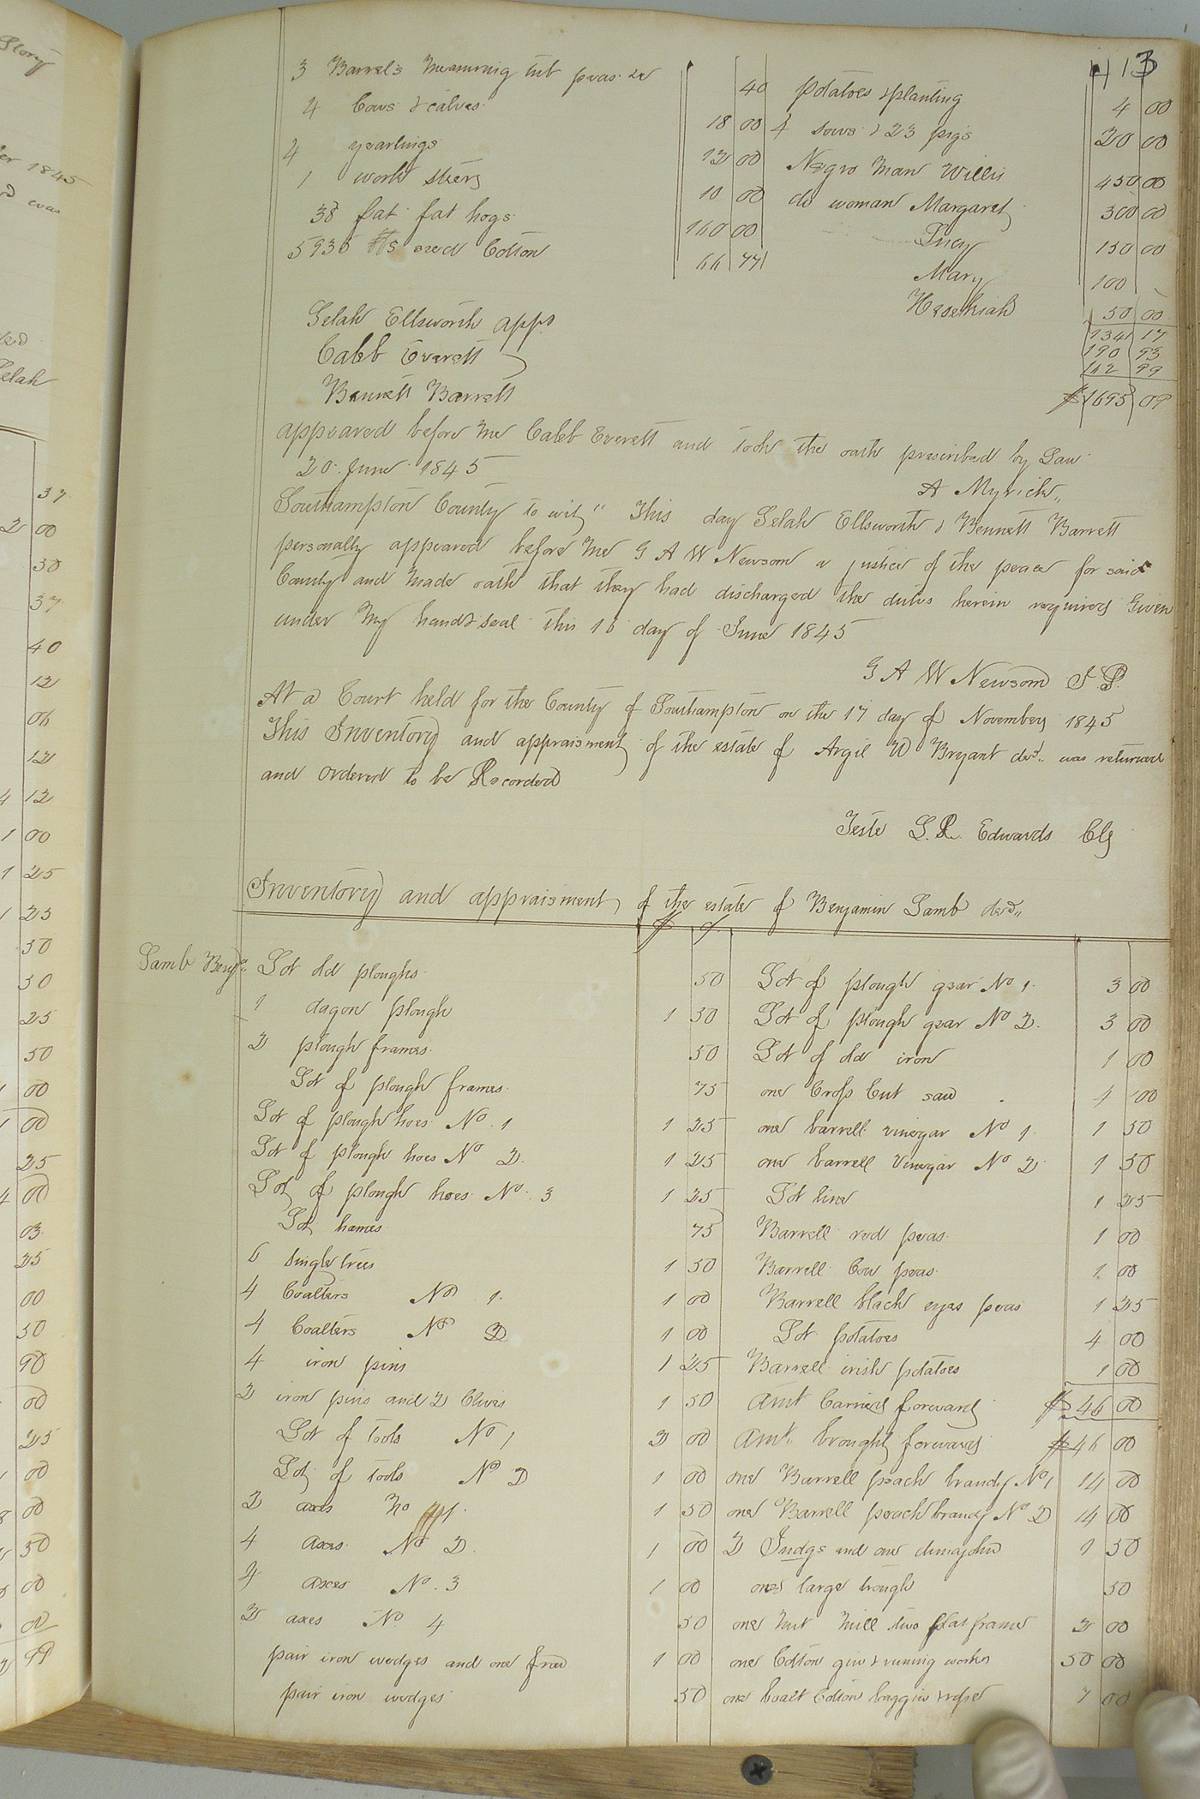 413
3 Barrels measuring tub peas &c 40
4 Cows & calves 18 00
4 yearlings 12 00
1 work steers 10 00
38 fat hogs 160 00
5935 lbs seed Cotton 66 77
potatoes & planting 4 00
4 sows & 23 pigs 20 00
Negro man Willis 450 00
do woman Margaret 300 00
Lucy 150 00
Mary 100
Hezekiah 50 00
1341 17
190 93
162 99
$1695 09
Selah Ellsworth apprs
Caleb Everett
Bennett Barrett
appeared before me Caleb Everett and took the oath prescribed by Law
20 June 1845
A Myrick
Southampton County to wit, This day Selah Ellsworth & Bennett Barrett
personally appeared before me G A W Newsom a justice of the peace for said
County and made oath that they had discharged the duties herein required Given
under my hand & seal this 16 day of June 1845
G A W Newsom J P.
At a Court held for the County of Southampton on the 17 day of November 1845
This Inventory and appraisment of the estate of Argil W Bryant decd. was returned
and ordered to be Recorded
Teste L. R. Edwards Clk
Inventory and appraisment, of the estate of Benjamin Lamb decd.
$ c
Lamb Benj.
Lot old ploughs 50
1 dagon plough 1 50
2 plough frames 50
Lot of plough frames 75
Lot of plough hoes No. 1 1 25
Lot of plough hoes No 2. 1 25
Lot of plough hoes No. 3 1 25
Lot hames 75
6 singletrees 1 50
4 Coalters No 1. 1 00
4 Coalters No 2 1 00
4 iron pins 1 25
2 iron pins and 2 Clivis 1 50
Lot of tools No 1 2 00
Lot of tools No 2 1 00
2 axes No 1. 1 50
4 axes No 2. 1 00
4 axes No. 3 1 00
2 axes No 4 50
pair iron wedges and one froe 1 00
pair iron wedges 50
Lot of plough gear No 1. 3 00
Lot of plough gear No 2. 3 00
Lot of old iron 1 00
one Cross Cut saw 4 00
one barrell vinegar No 1. 1 50
one barrell Vinegar No 2 1 50
Lot lime 1 25
Barrell red peas 1 00
Barrell Cow peas 1 00
Barrell black eyes peas 1 25
Lot potatoes 4 00
Barrell irish potatoes 1 00
Amt Carried forward $46 00
Amt. brought forward $46 00
one Barrell peach brandy No 1 14 00
one Barrell peach brandy No 2 14 00
2 Judgs and one demijohn 1 50
one large trough 50
one nut mill two frame 2 00
one Cotton gin & running works 50 00
one Coalt Cotton baggin & rope 7 00